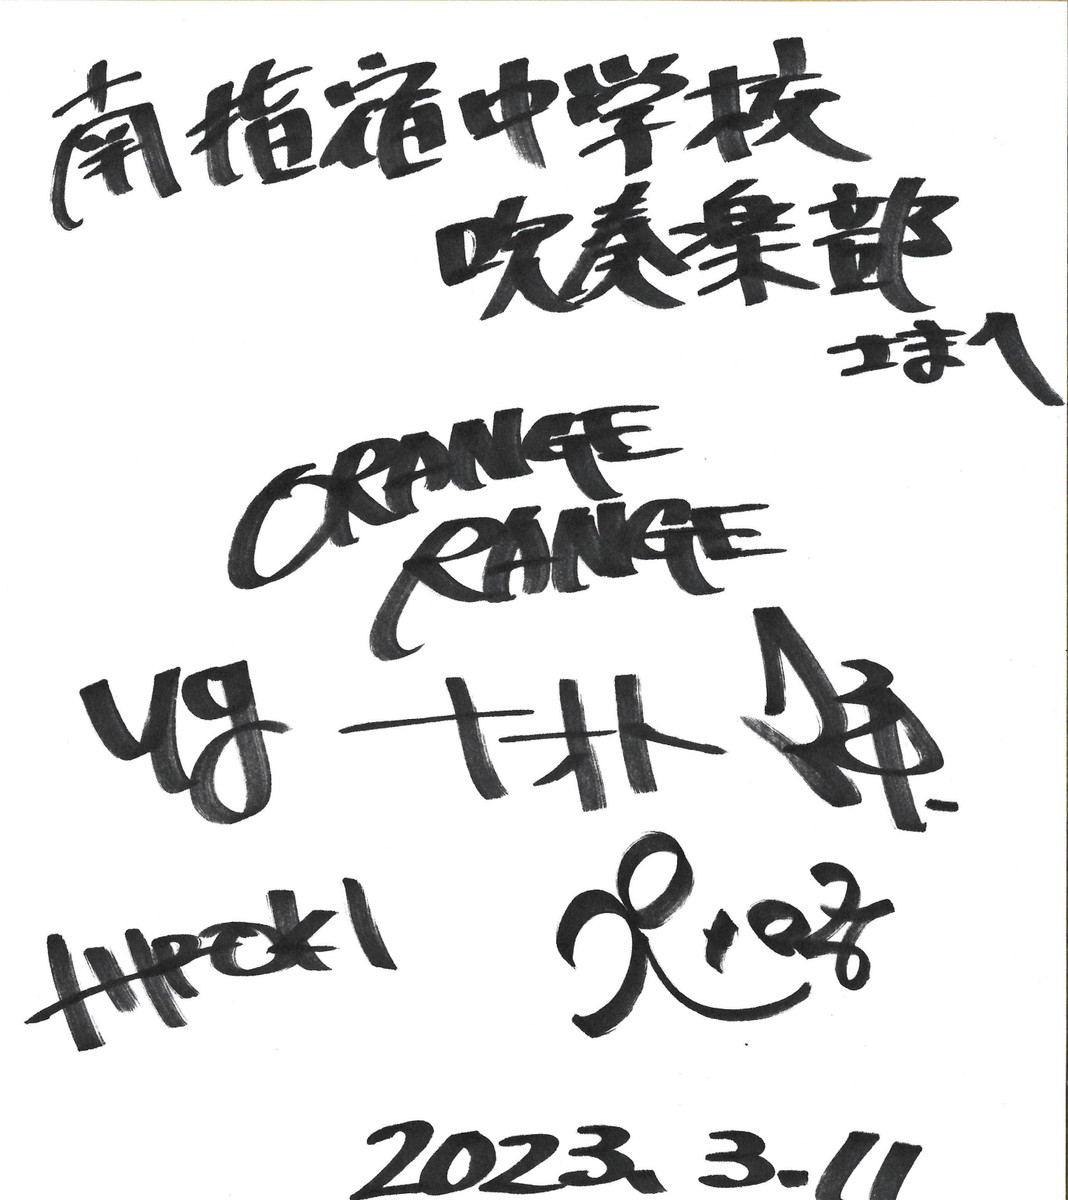 南指宿中学校
吹奏楽部
さまへ
ORANGE
RANGE
HIROKI
2023. 3.11